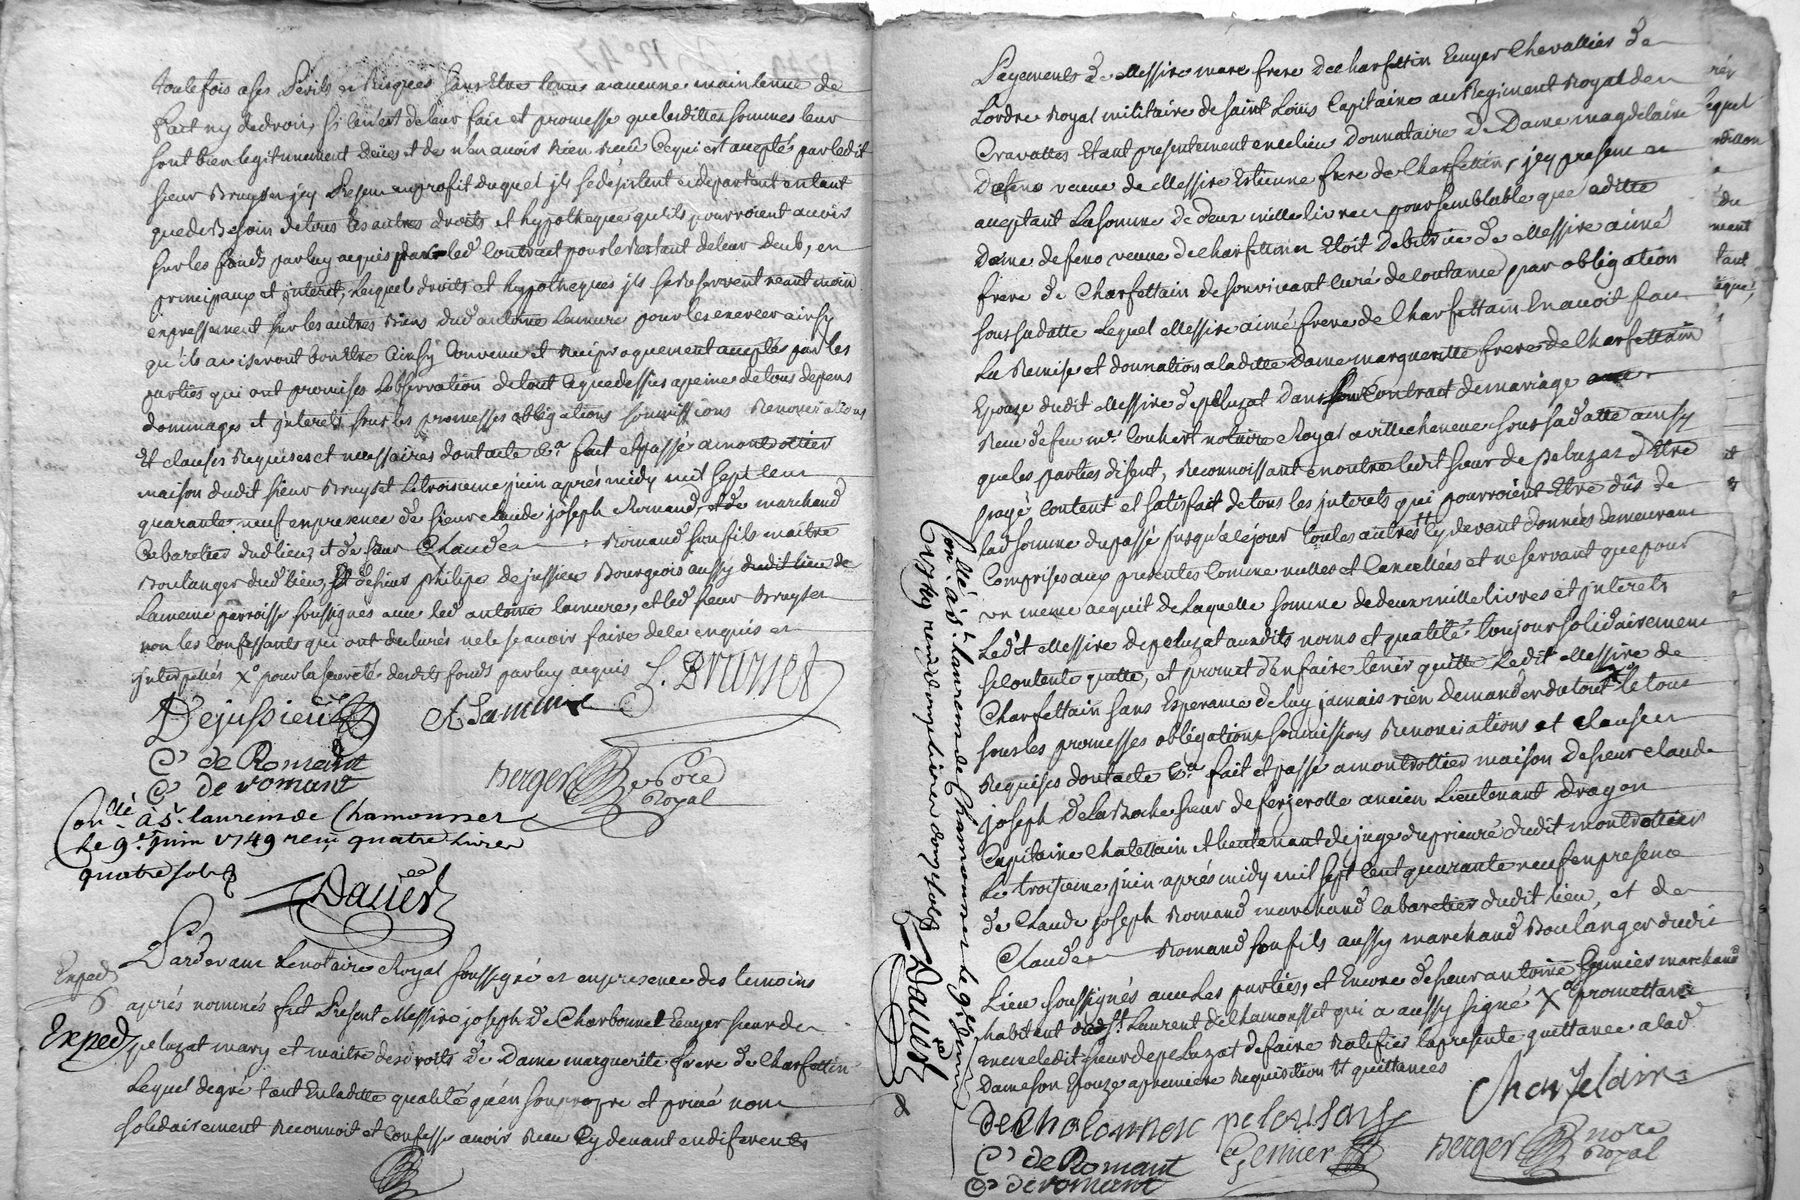 toutefois a ses Perils et Risques sans Etre tenus a aucune maintenue de
fait ny de droit, si ce n'est de leur fait et promesse que lesdittes sommes leur
sont bien legitimement deües et de n'en avoir Rien Receu Ce qui est accepté par ledit
sieur Bruyset jcy Present au profit duquel jls se desistent et departent en tant
que de Besoin de tous les autres droits et hypotheques qu'ils pourroient avoir
sur les fonds par luy acquis par led Contract pour le Restant de leur deub, en
principaux et jnterets, lesquels droits et hypotheques jls se Reservent neantmoin
expressement sur les autres Biens dud antoine Lamure pour les exercer ainsy
qu'ils aviseront bon Etre Ainsy Convenu et Reciproquement accepté par les
parties qui ont promises L'observation de tout Ce que dessus a peine de tous depens
dommages et jnterets sous les promesses obligations soumissions Renonciations
Et clauses Requises et necessaires dont acte Ca fait et passé a montrottier
maison dudit sieur Bruyset Le troisieme juin après midy mil sept Cent
quarante neuf en presence de sieur Claude joseph Romand, marchand
Cabaretier dud lieu, et de sieur Claude Romand son fils maitre
Boulanger dud lieu, Et de sieur philipe dejussieu Bourgeois aussy dudit lieu de
La meme parroisse soussignés avec led antoine lamure, et led sieur Bruyset
non les Confessants qui ont declarés ne le sçavoir faire de ce enquis et
jnterpellés X pour la seureté desdits fonds par luy acquis J. Bruyset
Dejussieu A Lamure
C de Romant
C de romant Berger no.re Royal
Con.lé a St laurens de Chamousset
Le 9e juin 1749 reçu quatre Livres
quatre sols
Daüet
Expedé
Pardevant Le notaire Royal soussigné et en presence des temoins
après nommés fut Present Messire joseph de Charbonnel Ecuyer sieur de
Exped peluzat mary et maitre des droits de Dame marguerite frere de Charfettin
Lequel de gré tant En laditte qualité qu'en son propre et privé nom
solidairement Reconnoit et Confesse avoir Reçu Cy devant en diferents
Payements de Messire marc frere de Charfettin Ecuyer Chevallier de
L'ordre Royal militaire de Saint Loüis Capitaine au Regiment Royal des
Cravattes Etant presentement en ce lieu Donnataire de Dame magdelaine
Defeno veuve de Messire Estienne frere de Charfettin, jcy present et
acceptant La somme de deux mille livres pour semblable que laditte
Dame defeno veuve de Charfettin Etoit Debitrice de Messire aimé
frere de Charfettain de son vivant Curé de Coutance par obligation
sous sa datte Lequel Messire aimé frere de Charfettain En avoit fait
La Remise et donnation a laditte Dame marguerite frere de Charfettain
Epouze dudit Messire de peluzat Dans son Contract de mariage
Receu de feu mr Couhert notaire Royal a villecheneve sous sa datte ainsy
que les parties disent, Reconnoissant en outre ledit sieur de peluzat d'Etre
payé Content et satisfait de tous les jnterets qui pourroient Etre dûs de
lad somme du passé jusqu'a ce jour touttes autres Cy devant données demeurant
Comprises aux presentes Comme nulles et Cancellées et ne servant que pour
un meme acquit de laquelle somme de deux mille livres et jnterets
Ledit Messire de peluzat auxdits noms et qualité toujour solidairement
se Contente quitte, et promet d'en faire tenir quitte Ledit Messire de
Charfettain sans Esperance de luy jamais rien demander du tout Le tout
sous les promesses obligations soumissions Renonciations et clauses
Requises dont acte Ca fait et passé a montrottier maison de sieur Claude
joseph de La Roche sieur de ferjerolle ancien Lieutenant Dragon
Capitaine Chatellain et lieutenant de juge du prieuré dudit montrottier
Le troisieme juin après midy mil sept Cent quarante neuf en presence
de Claude joseph Romand marchand Cabaretier dudit lieu, et de
Claude Romand son fils aussy marchand Boulanger dudit
Lieu soussignés avec Les parties, et Encore de sieur antoine Grenier marchand
habitant dud St Laurent de Chamousset qui a aussy signé X promettant
meme ledit sieur de peluzat de faire Ratifier la presente quittance a lad
Dame son Epouze a premiere Requisition
Charfetain
de Charbonnel pelousat
C de Romant Grenier Berger no.re Royal
C de romant
Con.lé a St Laurens de Chamousset le 9e juin
1749 reçu douze sols Daüet